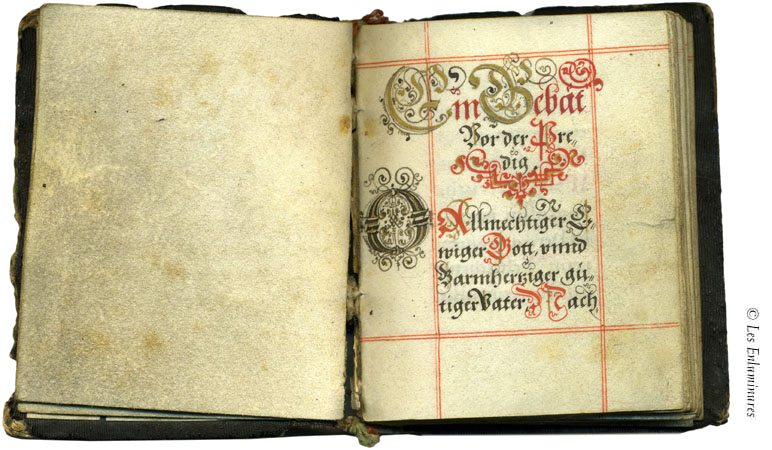 Ein Gebät
Vor der Pre=
dig
O Allmechtiger E=
wiger Gott, vnnd
Barmhertziger, gü=
tiger Vater Mach
© Les Enluminures